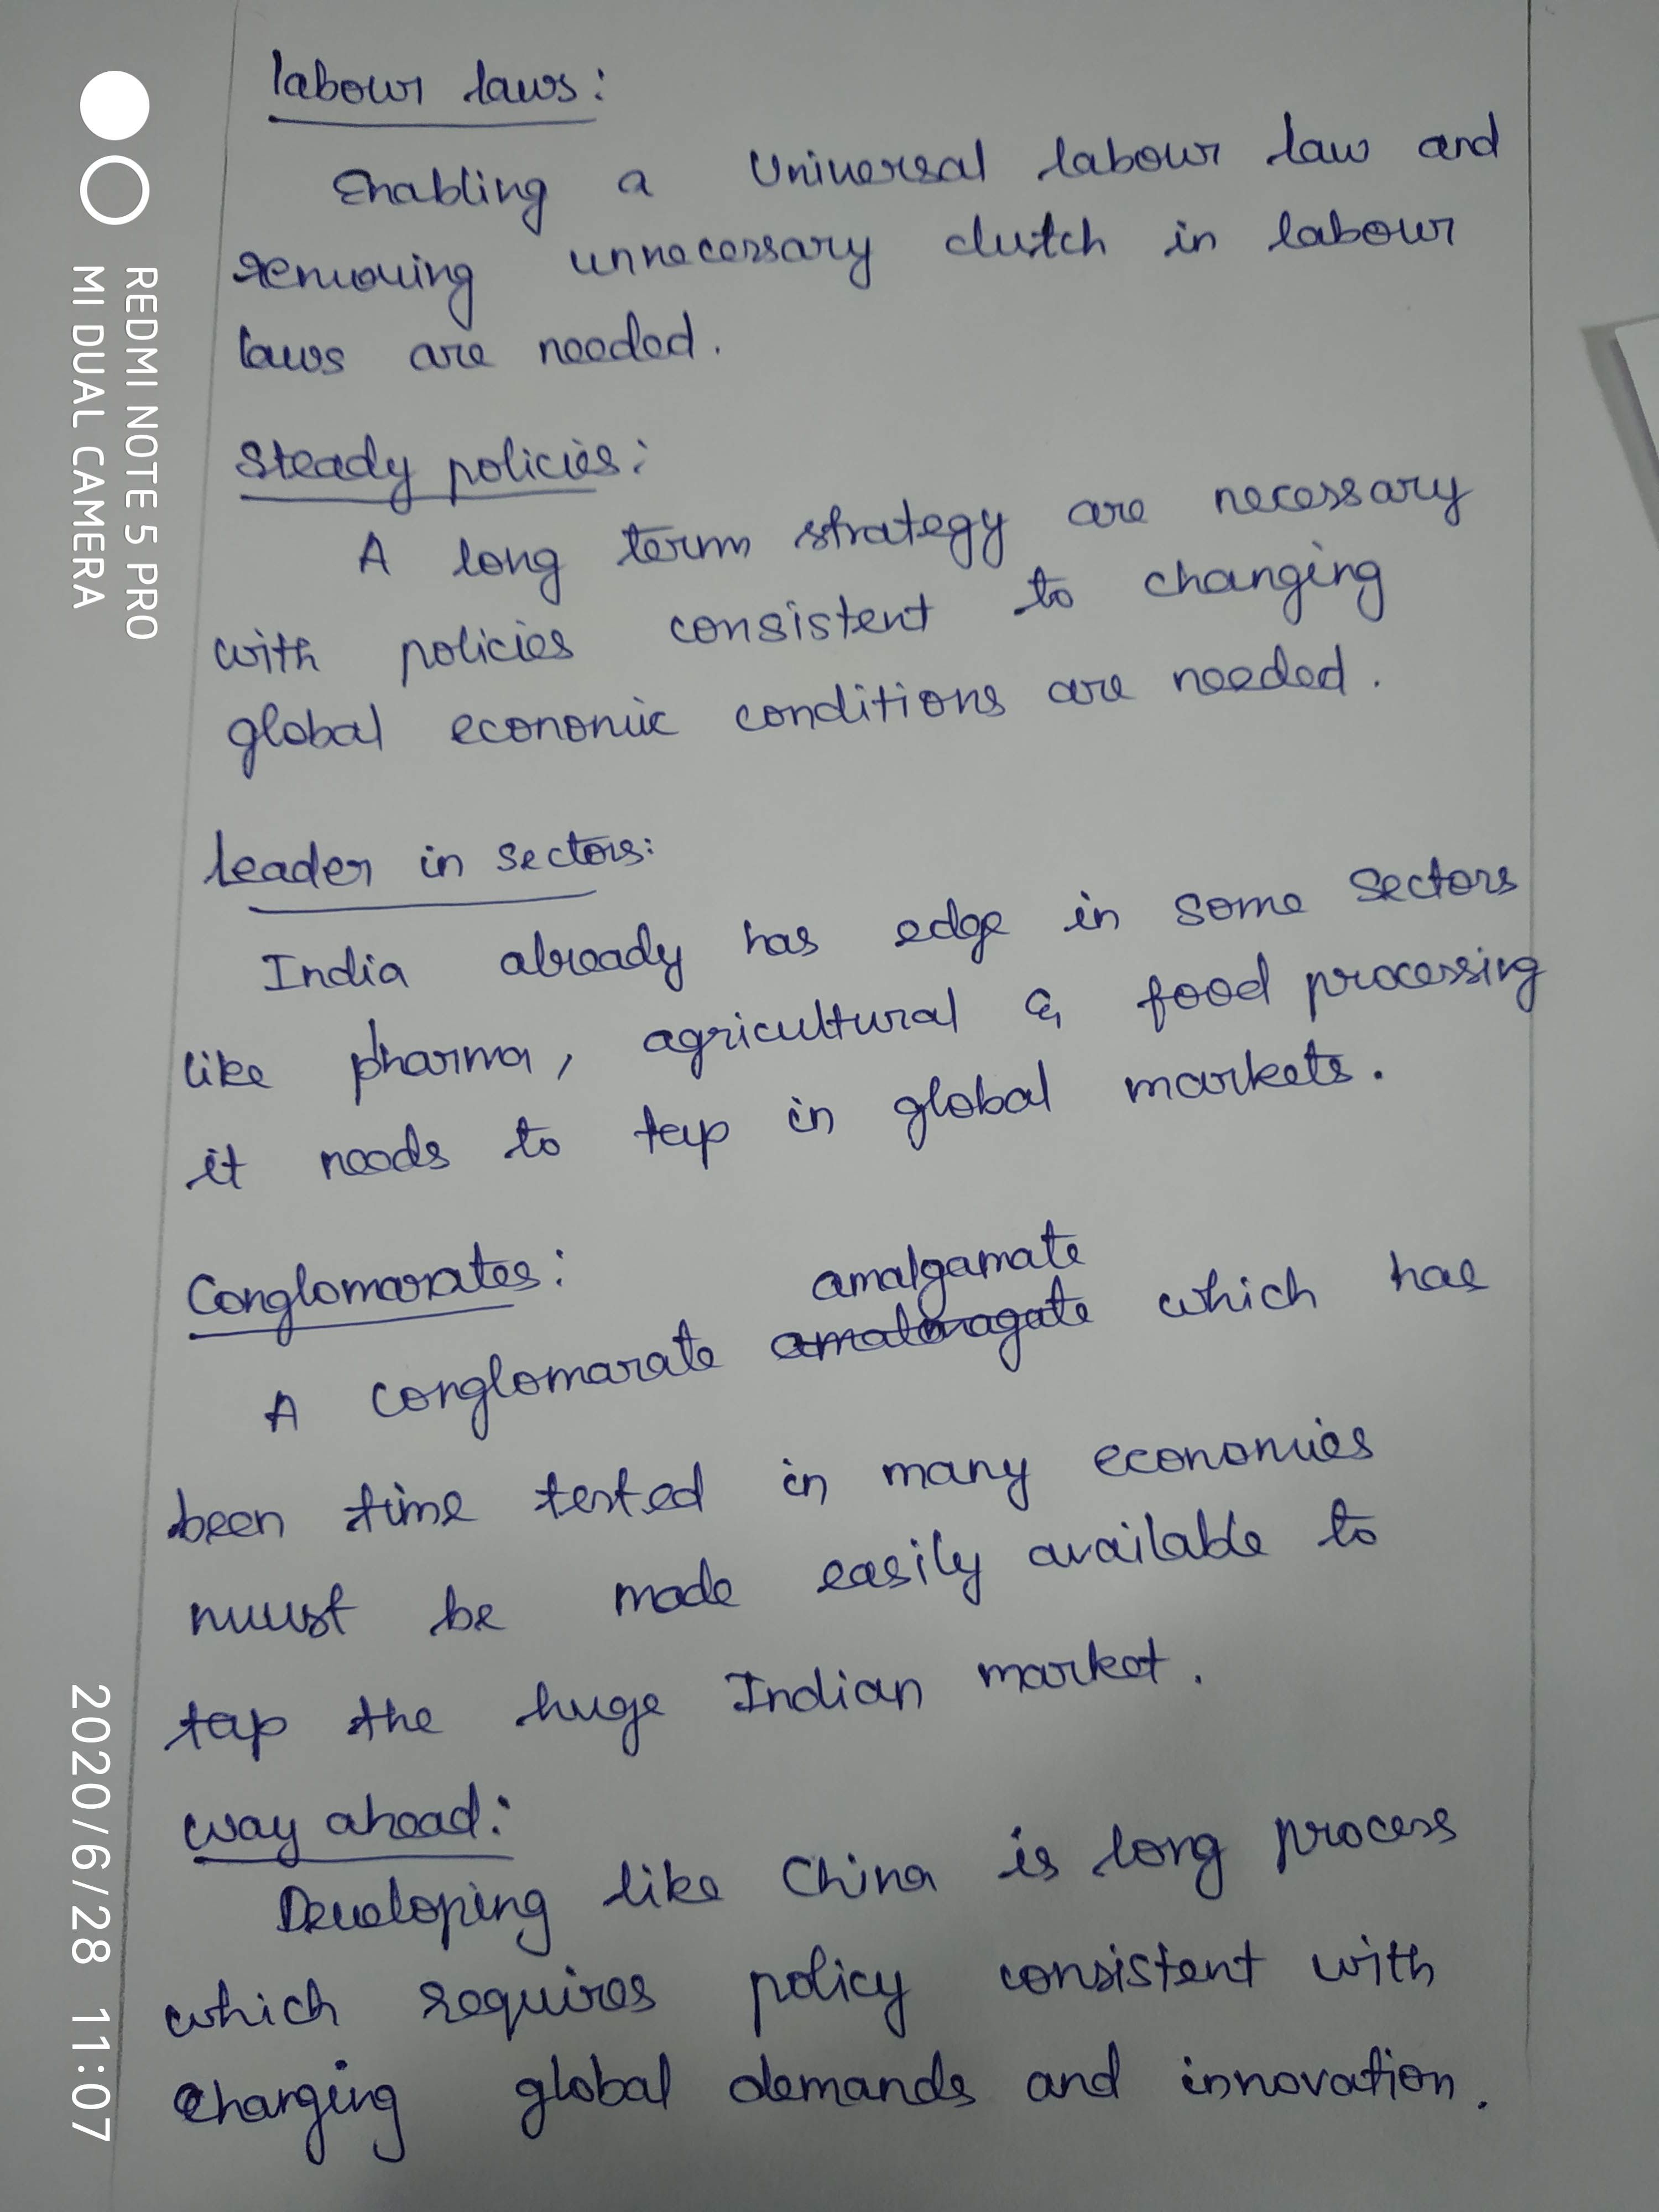 labour laws:
Enabling a Universal labour law and
removing unnecessary clutch in labour
laws are needed.
Steady policies:
A long term strategy are necessary
with policies consistent to changing
global economic conditions are needed.
leader in sectors:
India already has edge in some sectors
like pharma, agricultural & food processing
it needs to tap in global markets.
Conglomarates:
amalgamate
A conglomarate which has
been time tested in many economies
must be made easily available to
tap the huge Indian market.
way ahead:
Developing like China is long process
which requires policy consistent with
changing global demands and innovation.
REDMI NOTE 5 PRO
MI DUAL CAMERA
2020/6/28 11:07